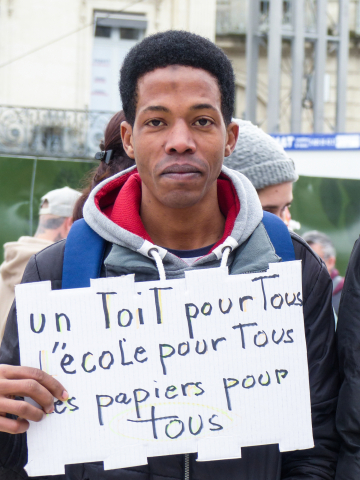 un Toit pour Tous
l'école pour Tous
es papiers pour
tous